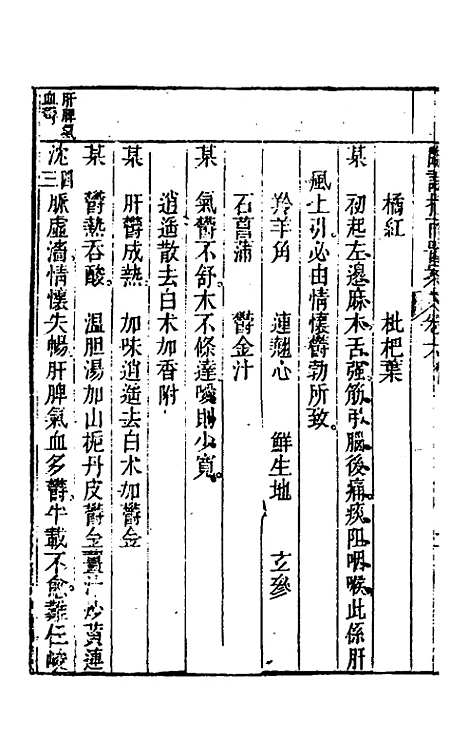 臨證指南醫案 卷六
橘紅 枇杷葉
某 初起左邊麻木舌强筋引腦後痛痰阻咽喉此係肝
風上引必由情懷鬱勃所致
羚羊角 連翹心 鮮生地 玄參
石菖蒲 鬱金汁
某 氣鬱不舒木不條達噯則少寬
逍遙散去白术加香附
某 肝鬱成熱 加味逍遙去白术加鬱金
某 鬱熱吞酸 温胆湯加山梔丹皮鬱金薑汁炒黃連
肝脾氣
血鬱
沈四三 脈虛濇情懷失暢肝脾氣血多鬱半載不愈難任峻